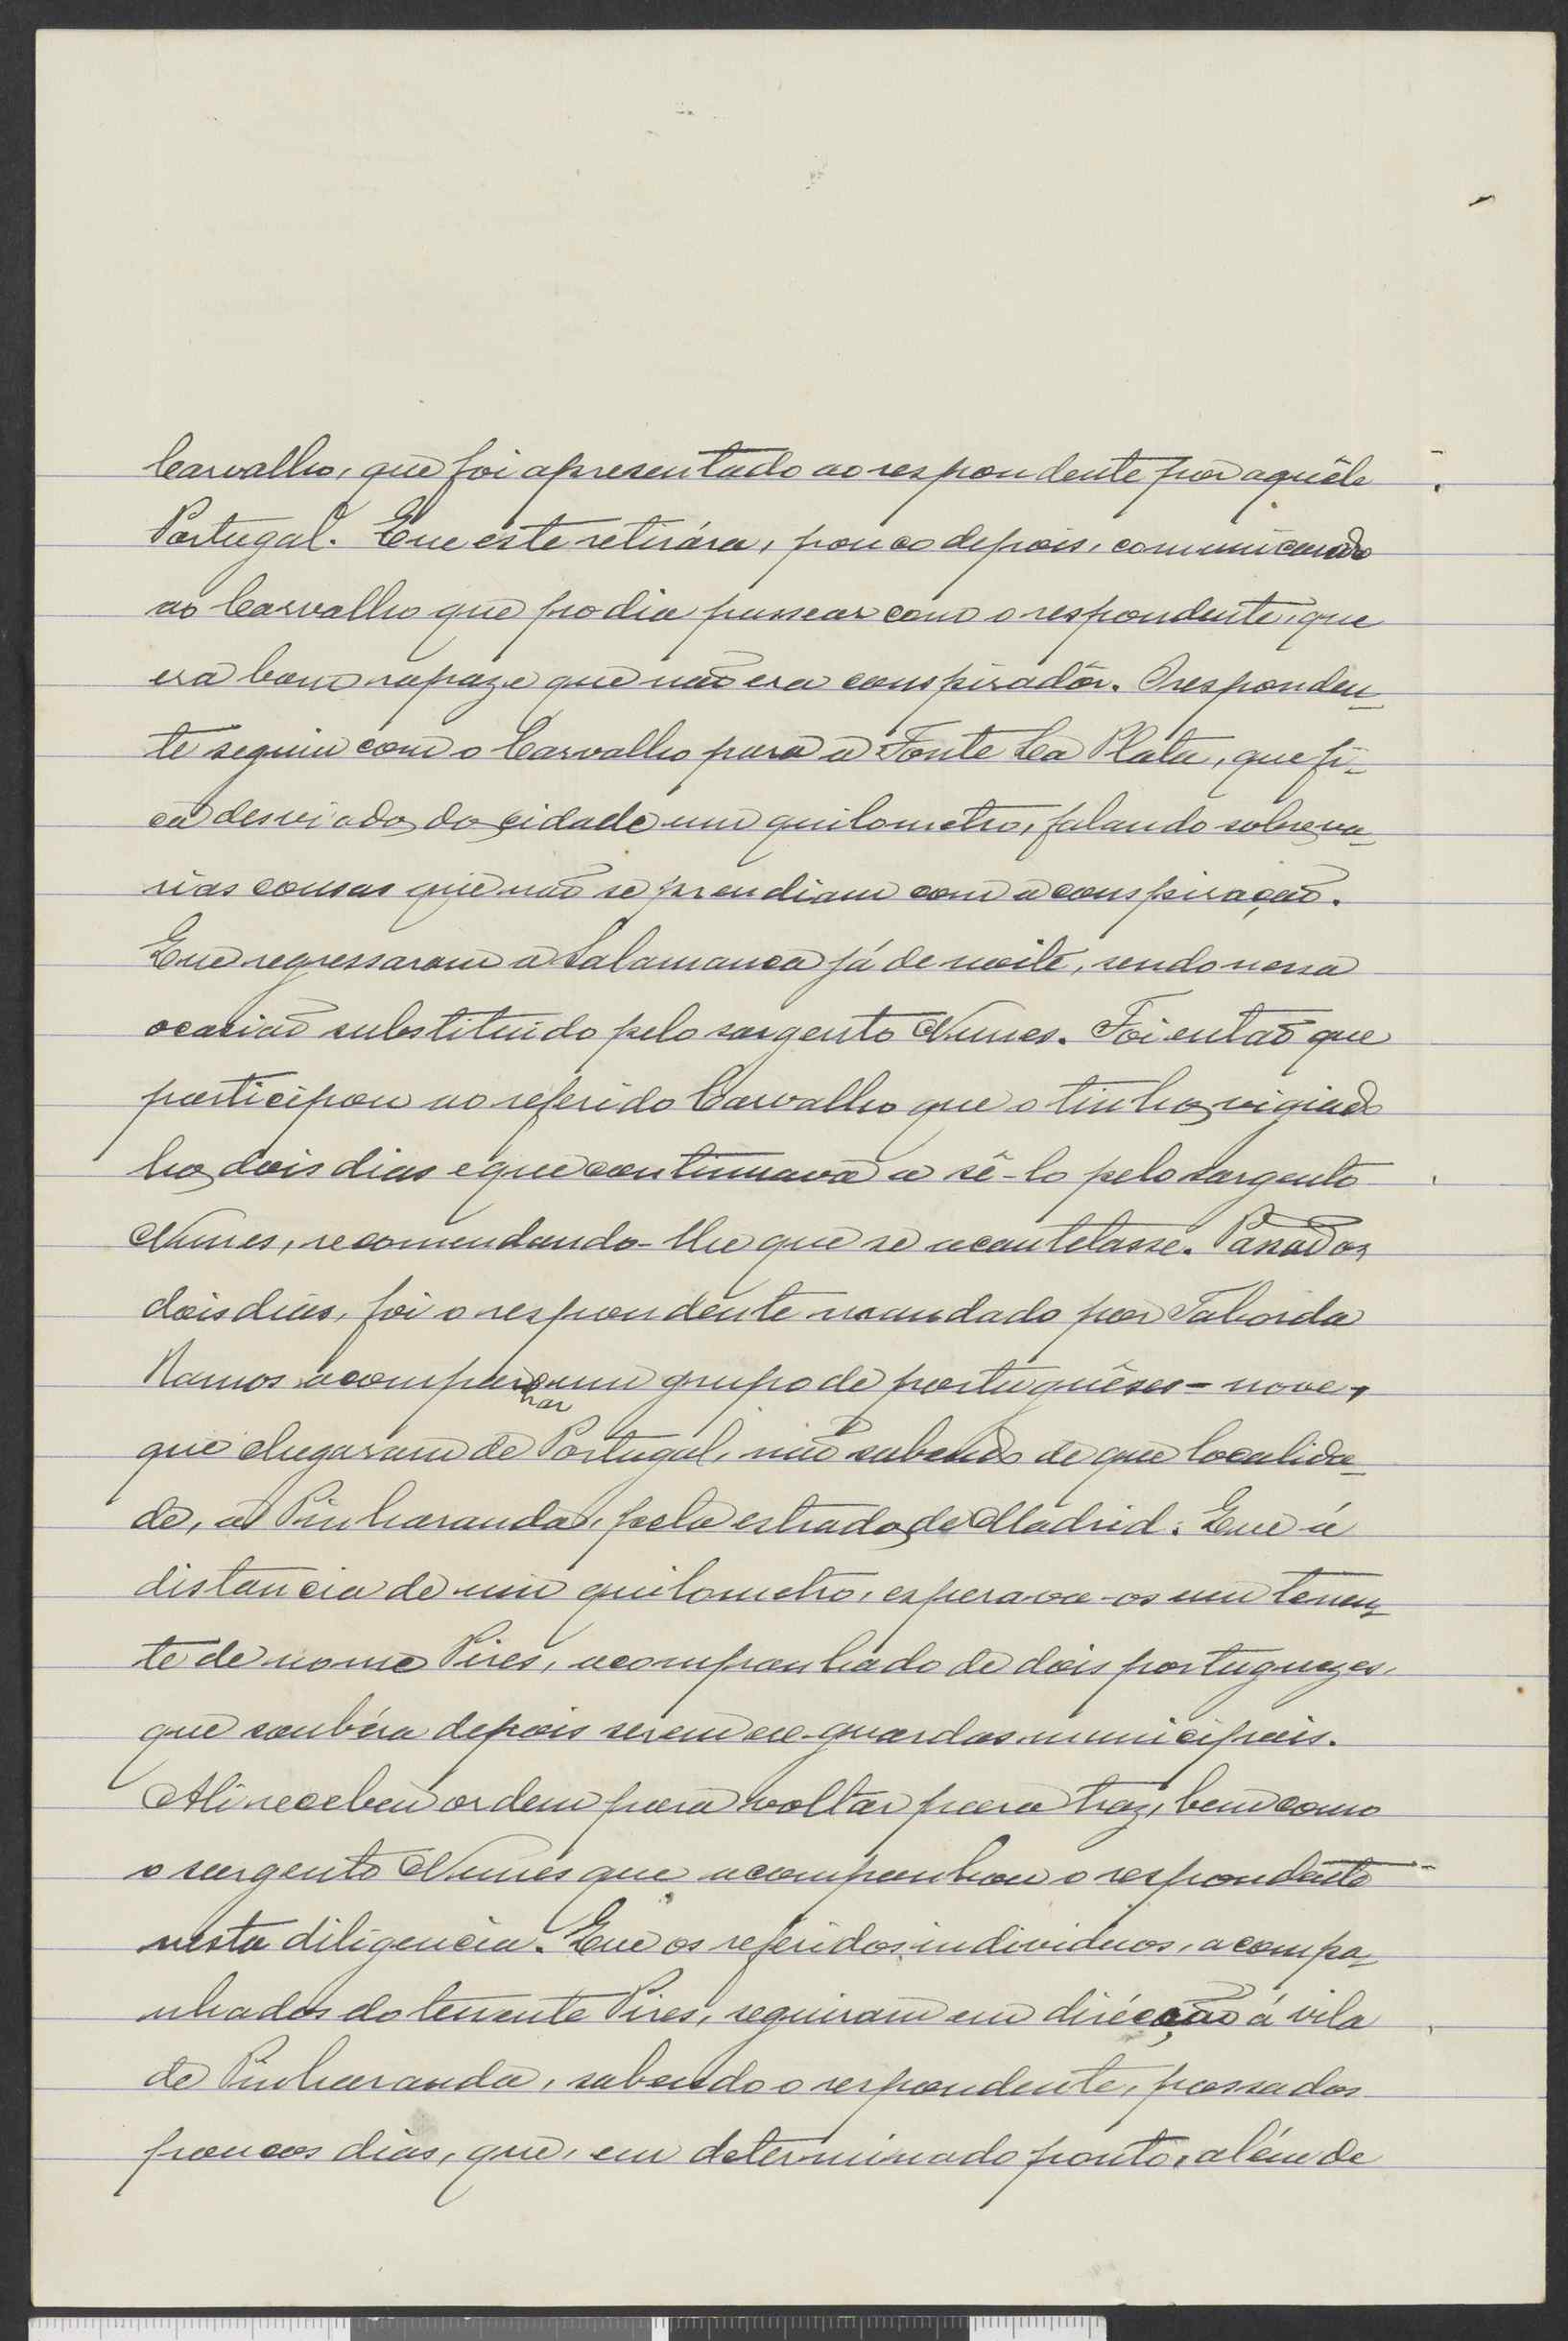 Carvalho, que foi apresentado ao respondente por aquêle
Portugal. Que êste retirára, pouco depois, comunicando
ao Carvalho que podia passear com o respondente, que
era bom rapaz e que não era conspiradôr. O responden-
te seguiu com o Carvalho para a Fonte La Plata, que fi-
ca desviada da cidade um quilometro, falando sobre va-
rias cousas que não se prendiam com a conspiração.
Que regressaram a Salamanca já de noite, sendo nessa
ocasião substituido pelo sargento Nunes. Foi então que
participou ao referido Carvalho que o tinha vigiado
ha dois dias e que continuava a sê-lo pelo sargento
Nunes, recomendando-lhe que se acautelasse. Passados
dois dias, foi o respondente mandado por Taborda
Ramos acompanhar um grupo de portuguêses - nove,
que chegaram de Portugal, não sabendo de que localida-
de, a Pinharanda, pela estrada de Madrid. Que á
distancia de um quilometro, esperava-os um tenen-
te de nome Pires, acompanhado de dois portuguezes,
que soubéra depois serem ex-guardas municipais.
Ali recebeu ordem para voltar para traz, bem como
o sargento Nunes que acompanhou o respondente
nesta diligencia. Que os referidos individuos, acompa-
nhados do tenente Pires, seguiram em dirécção á vila
de Pinharanda, sabendo o respondente, passados
poucos dias, que, em determinado ponto, além de